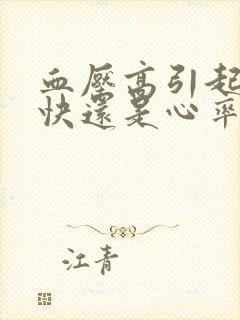 血壓高引起
快還是心率
江青